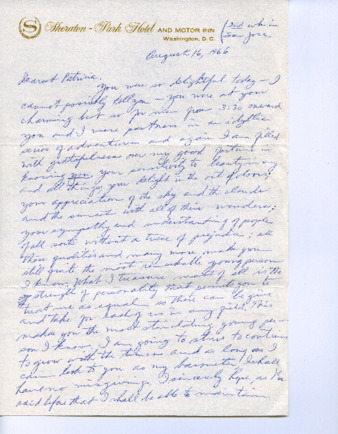 Sheraton-Park Hotel AND MOTOR INN
Washington, D.C.
in
San Jose
August 16, 1966
Dearest Patricia,
You were so delightful today - I
cannot possibly tell you - you were at your
charming best so for me from 3:30 onward
you and I were partners in an idyllic
series of adventures and again I am filled
with gratefulness over my good fortune in
knowing you your sensitivity to beauty in my
and all things, your delight in the out of doors,
your appreciation of the sky and the clouds
and the sunset with all of their wonders;
your sympathy and understanding of people
of all sorts without a trace of prejudice; all
these qualities and many more make you
still quite the most remarkable young person
I know. What I treasure most of all is the
strength of personality that permits you to
treat me as equal so there can be give
and take for each of us in any field. This
makes you the most stimulating young per-
son I know. I am going to strive to continue
to grow with the times and as long as I
can look to you as my barometer I shall
have no misgivings. I sincerely hope, as I've
said before that I shall be able to maintain